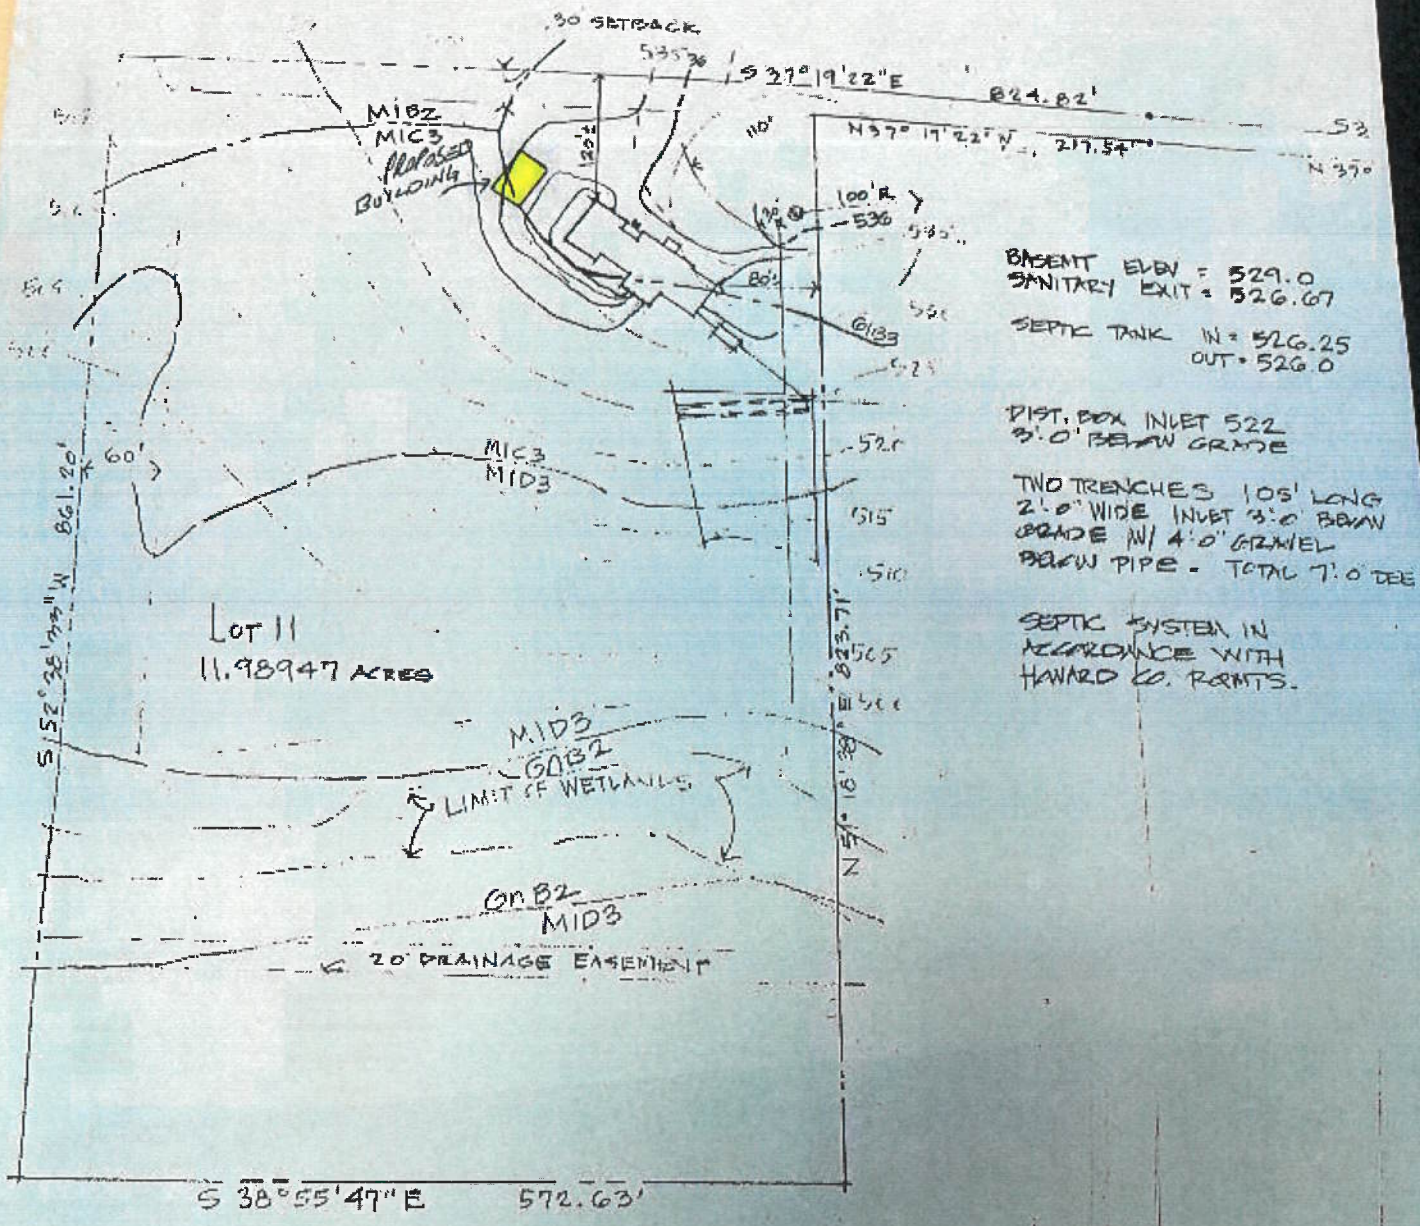 30 SETBACK
535
36
S 37° 19' 22" E
824.82'
N 37° 19' 22" W
217.54'
S 3
N 370
M1B2
M1C3
PROPOSED
BUILDING
120'±
110'
30'
100' R
536
535
80'±
6133
520
515
510
505
BASEMT ELEV = 529.0
SANITARY EXIT = 526.67
SEPTIC TANK IN = 526.25
OUT = 526.0
DIST. BOX INLET 522
3'.0" BELOW GRADE
TWO TRENCHES 105' LONG
2'.0" WIDE INLET 3'.0" BELOW
GRADE W/ 4'.0" GRAVEL
BELOW PIPE - TOTAL 7'.0 DEE
SEPTIC SYSTEM IN
ACCORDANCE WITH
HOWARD CO. RQMTS.
60'
M1C3
M1D3
S 52° 38' 33" W 861.20'
LOT 11
11.98947 ACRES
823.71'
M1D3
GnB2
LIMIT OF WETLANDS
GnB2
M1D3
20' DRAINAGE EASEMENT
S 38° 55' 47" E 572.63'